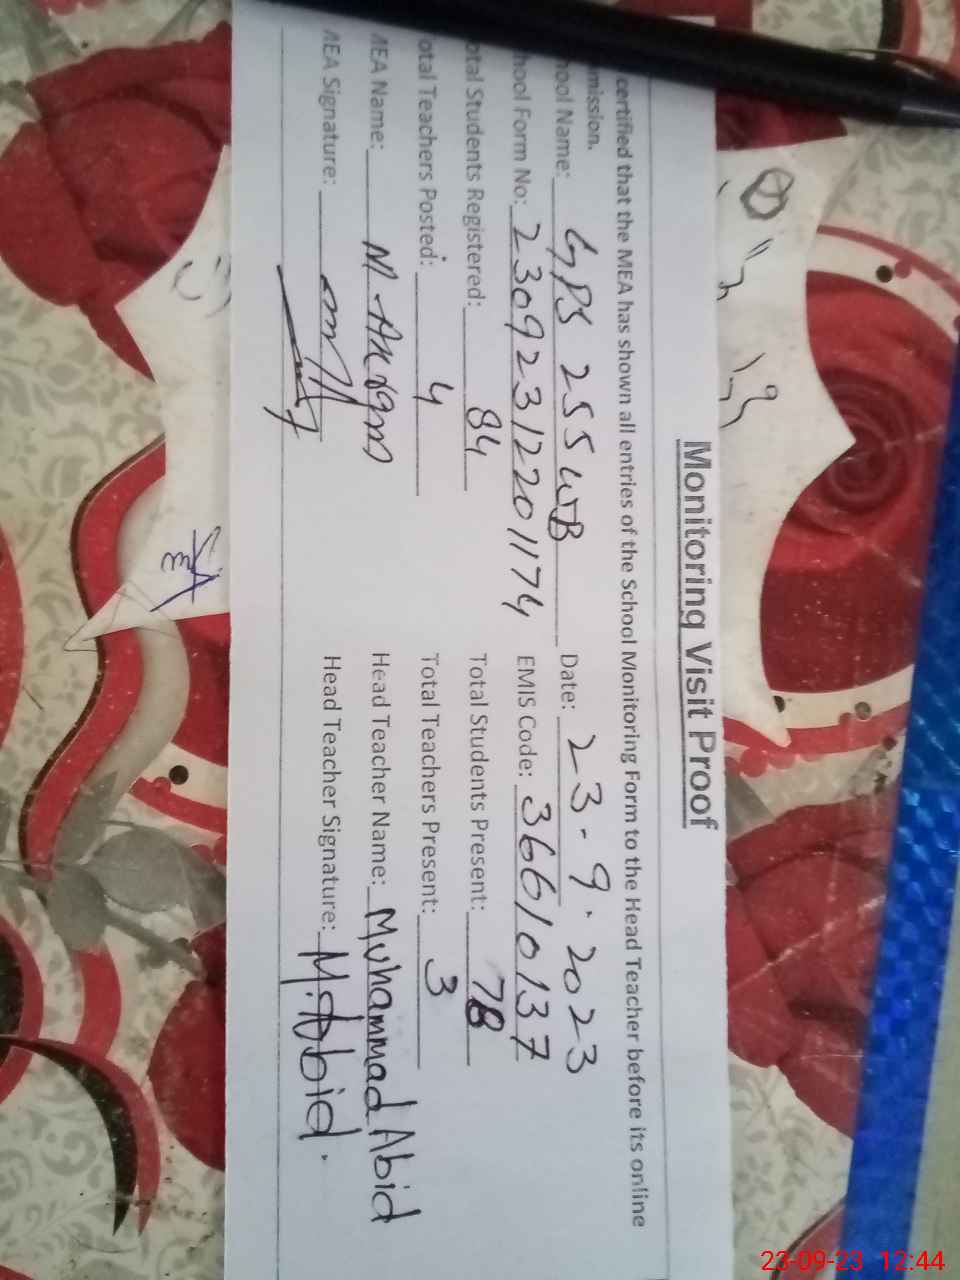 Monitoring Visit Proof
certified that the MEA has shown all entries of the School Monitoring Form to the Head Teacher before its online
mission.
hool Name: GPS 255 WB Date: 23-9-2023
hool Form No: 23092312201174 EMIS Code: 36610137
otal Students Registered: 84 Total Students Present: 78
otal Teachers Posted: 4 Total Teachers Present: 3
MEA Name: M. Akram Head Teacher Name: Muhammad Abid
MEA Signature: Head Teacher Signature: M.Abid.
23-09-23 12:44